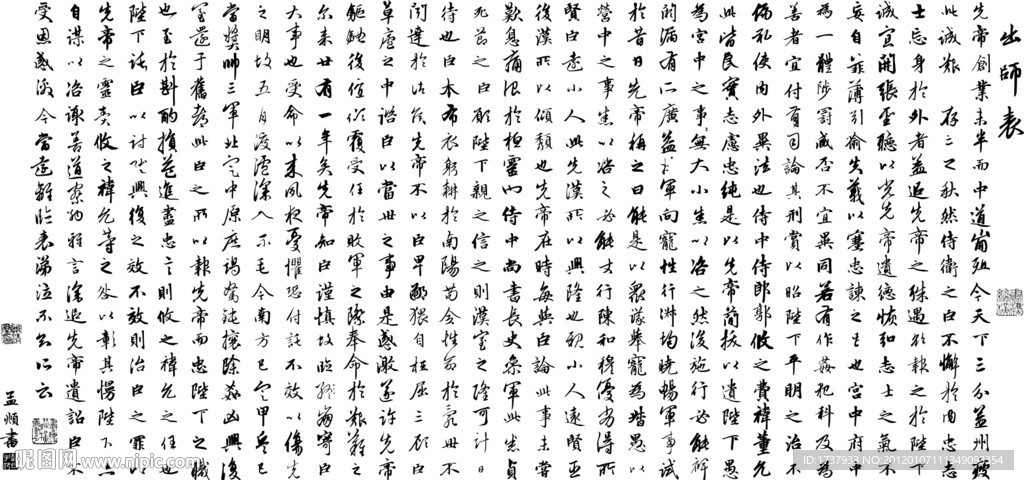 出師表
先帝創業未半而中道崩殂今天下三分益州疲
此誠艱 存亡之秋然侍衛之臣不懈於内忠志
士忘身於外者蓋追先帝之殊遇欲報之於陛下
誠宜開張聖聽以光先帝遺德恢弘志士之氣不
妄自菲薄引喻失義以塞忠諫之也宮中府中
為一體陟罰臧否不宜異同若有作姦犯科及為
善者宜付有司論其刑賞以昭陛下平明之治不
偏私使內外異法也侍中侍郎郭攸之費禕董允
此皆良實志慮忠純是以先帝簡拔以遺陛下愚
為宮中之事無大小悉以咨之然後施行必能裨
闕漏有所廣益將軍向寵性行淑均曉暢軍事試
於昔日先帝稱之曰能是以眾議舉寵為督愚以
營中之事悉以咨之必能行陳和穆優劣得所
賢臣遠小人此先漢所以興隆也親小人遠賢臣
後漢所以傾頹也先帝在時每與臣論此事未嘗
歎息痛恨於桓靈也侍中尚書長史參軍此悉貞
死節之臣願陛下親之信之則漢室之隆可計日
待也臣本布衣躬耕於南陽苟全性命於亂世不
聞達於諸侯先帝不以臣卑鄙猥自枉屈三顧臣
草廬之中諮臣以當世之事由是感激遂許先帝
驅馳後值傾覆受任於敗軍之際奉命於艱難之
爾来廿有一年矣先帝知臣謹慎故臨崩寄臣
大事也受命以来夙夜憂懼恐付託不效以傷先
之明故五月渡瀘深入不毛今南方已定甲兵已
當獎帥三軍北定中原庶竭駑鈍攘除姦凶興復
室還于舊都此臣之所以報先帝而忠陛下之職
也至於斟酌損益進盡忠言則攸之禕允之任也
陛下託臣以討賊興復之效不效則治臣之罪以
先帝之靈責攸之禕允等之咎以彰其慢陛下亦
自謀以咨諏善道察納雅言深追先帝遺詔臣不
受恩感激今當遠離臨表涕泣不知所云
孟順書
昵图网 www.nipic.com
ID:1737933 NO:20120107111349093354